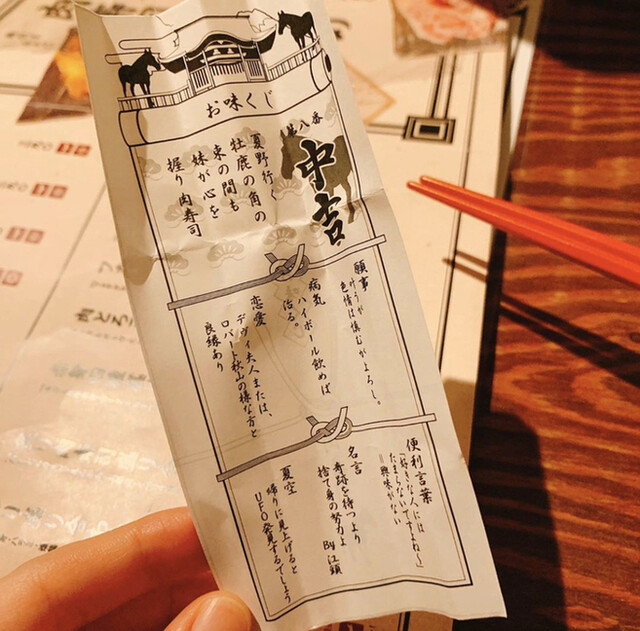 お味くじ
第八番
中吉
夏野行く
牡鹿の角の
束の間も
妹が心を
握り肉寿司
願事
叶うが
色情は慎むがよろし。
病気
ハイボール飲めば
治る。
恋愛
デヴィ夫人または、
ロバート秋山の様な方と
良縁あり
便利言葉
「好きな人には
たまらないですよね！」
＝興味がない
名言
奇跡を待つより
捨て身の努力よ
By 江頭
夏空
帰りに見上げると
UFO発見するでしょう